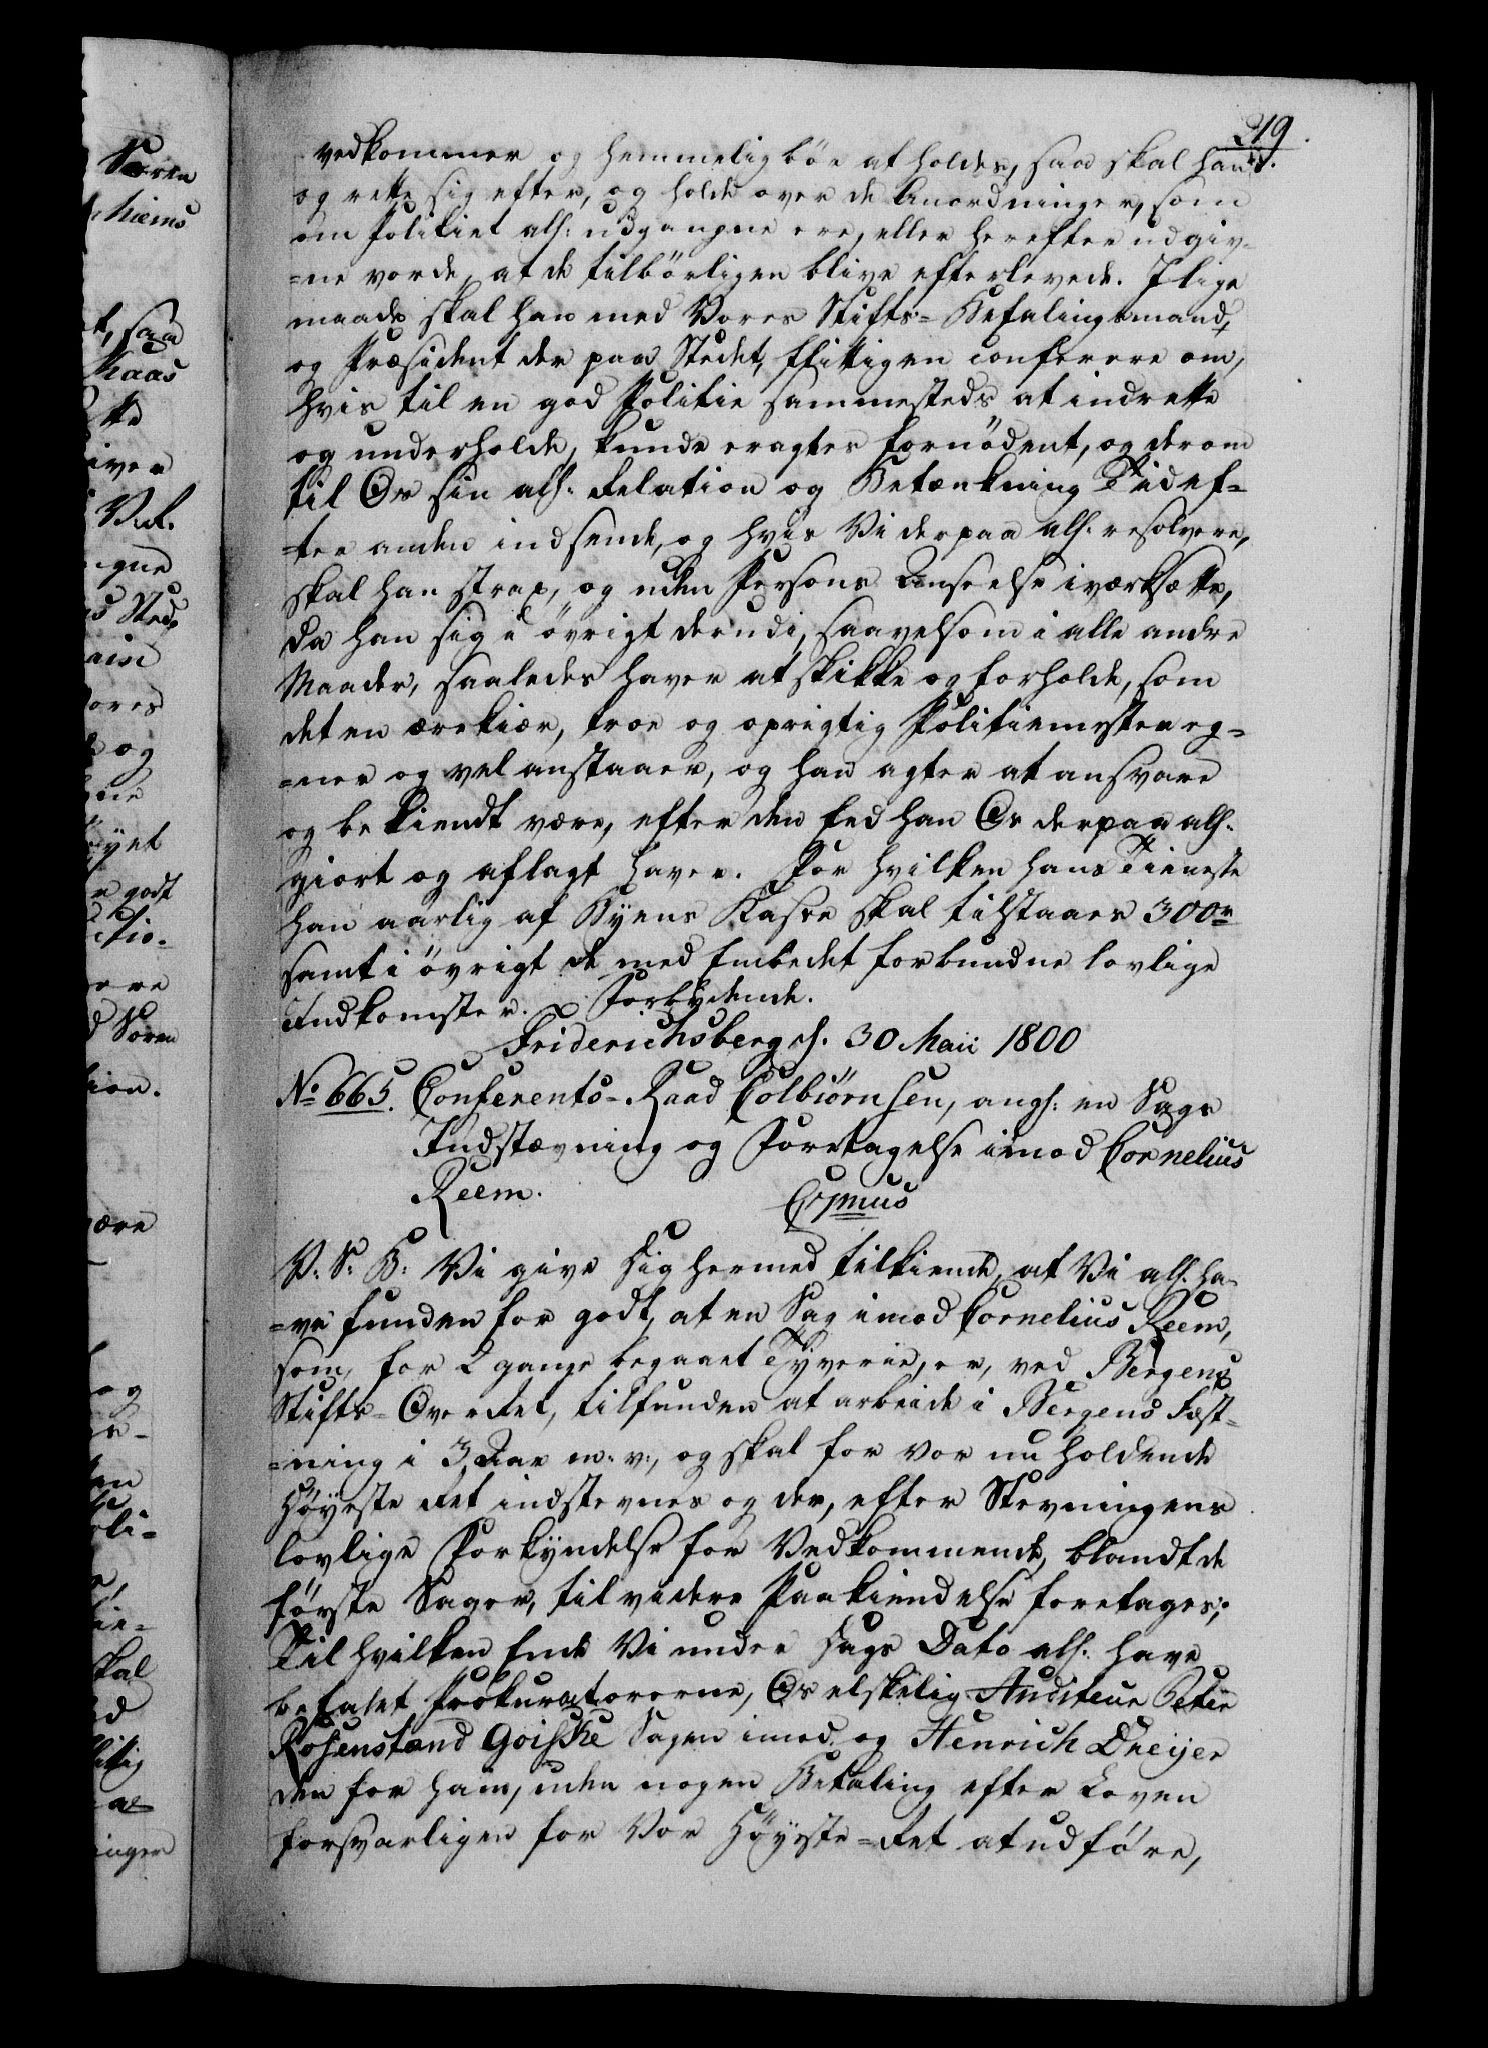 219.
vedkommer og hemmelig bör at holdes, saa skal han
og rette sig efter, og holde over de Anordninger, som
om Politiet alh: udgangne ere, eller herefter udgiv-
=ne vorde, at de tilbörligen blive efterlevede. I lige
maade skal han med Vores Stifts=Befalingsmand,
og Præsident der paa Stedet, flittigen conferere om,
hvis til en god Politie sammesteds at indrette
og underholde, kunde eragtes fornödent, og derom
til Os sin alh: Relation og Betænkning Tid ef=
=ter anden indsende, og hvis Vi derpaa alh. resolvere,
skal han strax, og uden Persons Anseelse iværksætte,
da han sig i övrigt derudi, saavelsom i alle andre
Maader, saaledes haver at skikke og forholde, som
det en ærekiær, troe og oprigtig Politiemester eg=
=ner og vel anstaaer, og han agter at ansvare
og bekiendt være, efter den Eed han Os derpaa alh.
giort og aflagt haver. For hvilken hans Tieneste
han aarlig af Byens Kasse skal tilstaaes 300r
samt i övrigt de med Embedet forbundne lovlige
Indkomster. Forbydende.
Friderichsberg d. 30 Maii 1800
No. 665. Conferents-Raad Colbiörnsen, angh: en Sags
Indstævning og Foretagelse imod Cornelius
Reem.
V: S: B: Vi give Dig hermed tilkiende, at Vi alh. ha-
=ve funden for godt, at en Sag imod Cornelius Reem,
som, for 2 gange begaaet Tyverie, er, ved Bergens
Stifts-Overret, tilfunden at arbeide i Bergens Fæst=
=ning i 3 Aar m: v:, og skal for vor nu holdende
Höyeste Ret indstevnes og der, efter Stevningens
lovlige Forkyndelse for Vedkommende, blandt de
förste Sager, til videre Paakiendelse foretages;
Til hvilken Ende Vi under Dags Dato alh. have
befalet Prokuratorerne, Os elskelig Auditeur Peter
Rosenstand Goiske Sagen imod, og Henrich Dreijer
den for ham, uden nogen Betaling efter Loven
forsvarligen for Vor Höyeste=Ret at udföre,